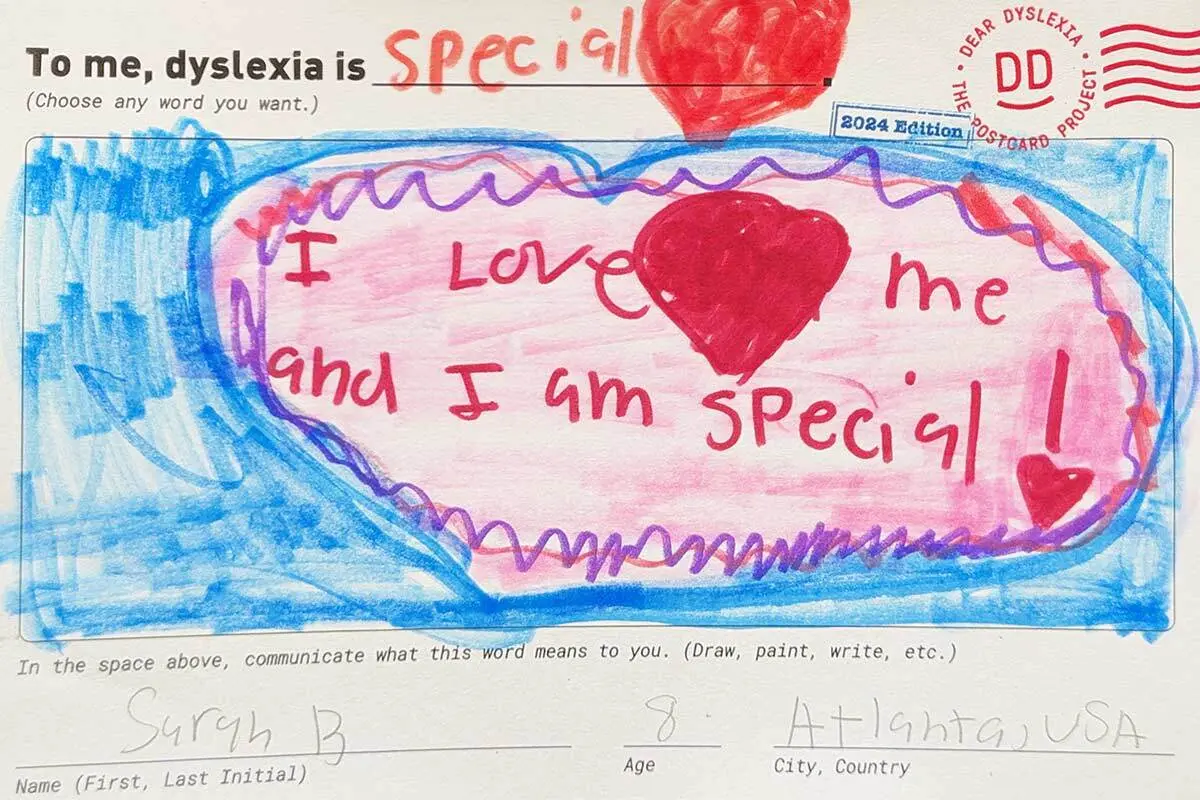 To me, dyslexia is special.
(Choose any word you want.)
DEAR DYSLEXIA
DD
THE POSTCARD PROJECT
2024 Edition
I Love me
and I am special!
In the space above, communicate what this word means to you. (Draw, paint, write, etc.)
Sarah B 8 Atlanta, USA
Name (First, Last Initial) Age City, Country